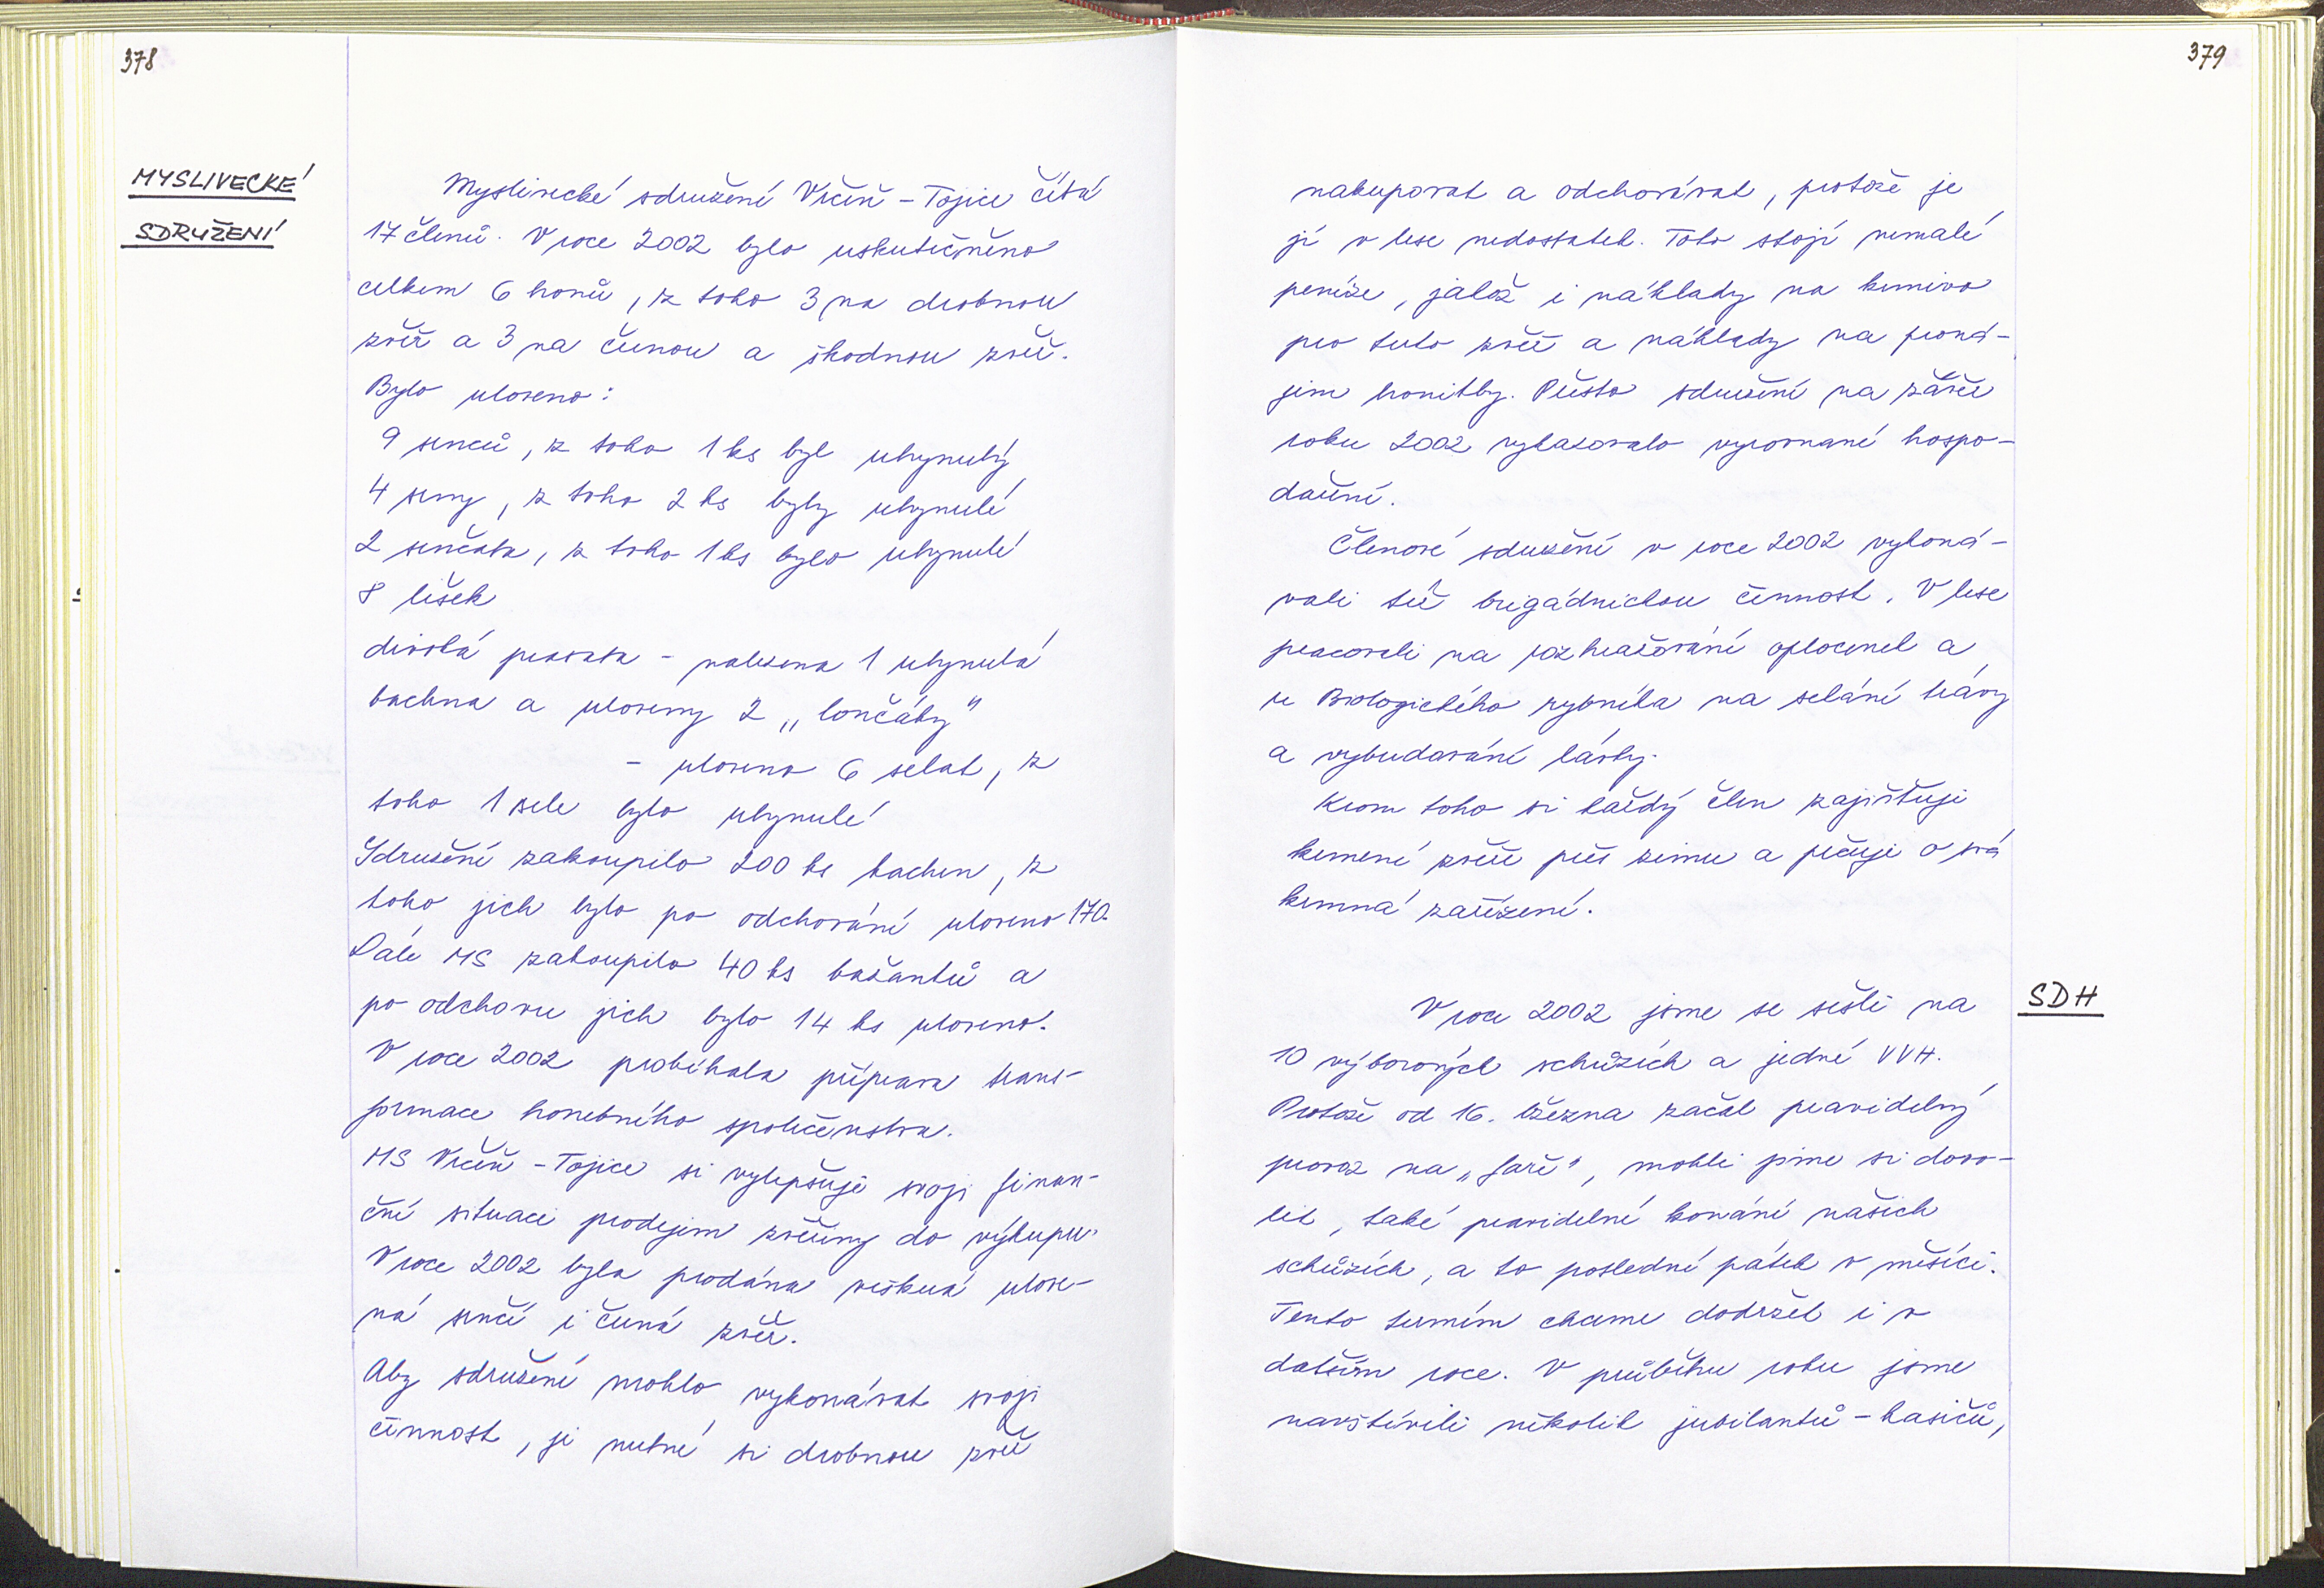 378
MYSLIVECKÉ
SDRUŽENÍ
Myslivecké sdružení Vrčeň - Tojice čítá
17 členů. V roce 2002 bylo uskutečněno
celkem 6 honů, z toho 3 na drobnou
zvěř a 3 na černou a škodnou zvěř.
Bylo uloveno:
9 srnců, z toho 1 ks byl uhynulý
4 srny, z toho 2 ks byly uhynulé
2 srnčata, z toho 1 ks bylo uhynulé
8 lišek
divoká prasata - nalezena 1 uhynulá
bachna a uloveny 2 „lončáky"
- uloveno 6 selat, z
toho 1 sele bylo uhynulé
Sdružení zakoupilo 200 ks kachen, z
toho jich bylo po odchování uloveno 170.
Dále MS zakoupilo 40 ks bažantů a
po odchovu jich bylo 14 ks uloveno.
V roce 2002 probíhala příprava trans-
formace honebního společenstva.
MS Vrčeň - Tojice si vylepšuje svoji finan-
ční situaci prodejem zvěřiny do výkupu.
V roce 2002 byla prodána veškerá ulove-
ná srnčí i černá zvěř.
Aby sdružení mohlo vykonávat svoji
činnost, je nutné si drobnou zvěř
379
nakupovat a odchovávat, protože je
jí v lese nedostatek. Toto stojí nemalé
peníze, jakož i náklady na krmivo
pro tuto zvěř a náklady na proná-
jem honitby. Přesto sdružení na závěr
roku 2002 vykazovalo vyrovnané hospo-
daření.
Členové sdružení v roce 2002 vykoná-
vali též brigádnickou činnost. V lese
pracovali na rozhrašování oplocenek a
u Biologického rybníka na sekání trávy
a vybudování lávky.
Krom toho si každý člen zajišťuje
krmení zvěře přes zimu a pečuje o svá
krmná zařízení.
SDH
V roce 2002 jsme se sešli na
10 výborových schůzích a jedné VVH.
Protože od 16. března začal pravidelný
provoz na „faře", mohli jsme si dovo-
lit, také pravidelné konání našich
schůzích, a to poslední pátek v měsíci.
Tento termín chceme dodržet i v
dalším roce. V průběhu roku jsme
navštívili několik jubilantů - hasičů,